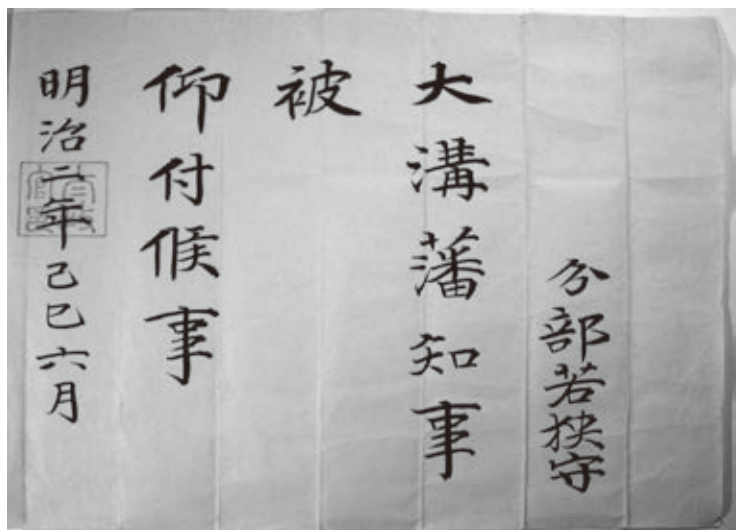 分部若狭守
大溝藩知事
被
仰付候事
明治二年己巳六月